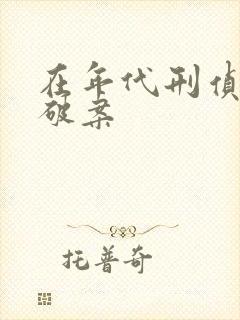 在年代刑侦
破案
托普奇